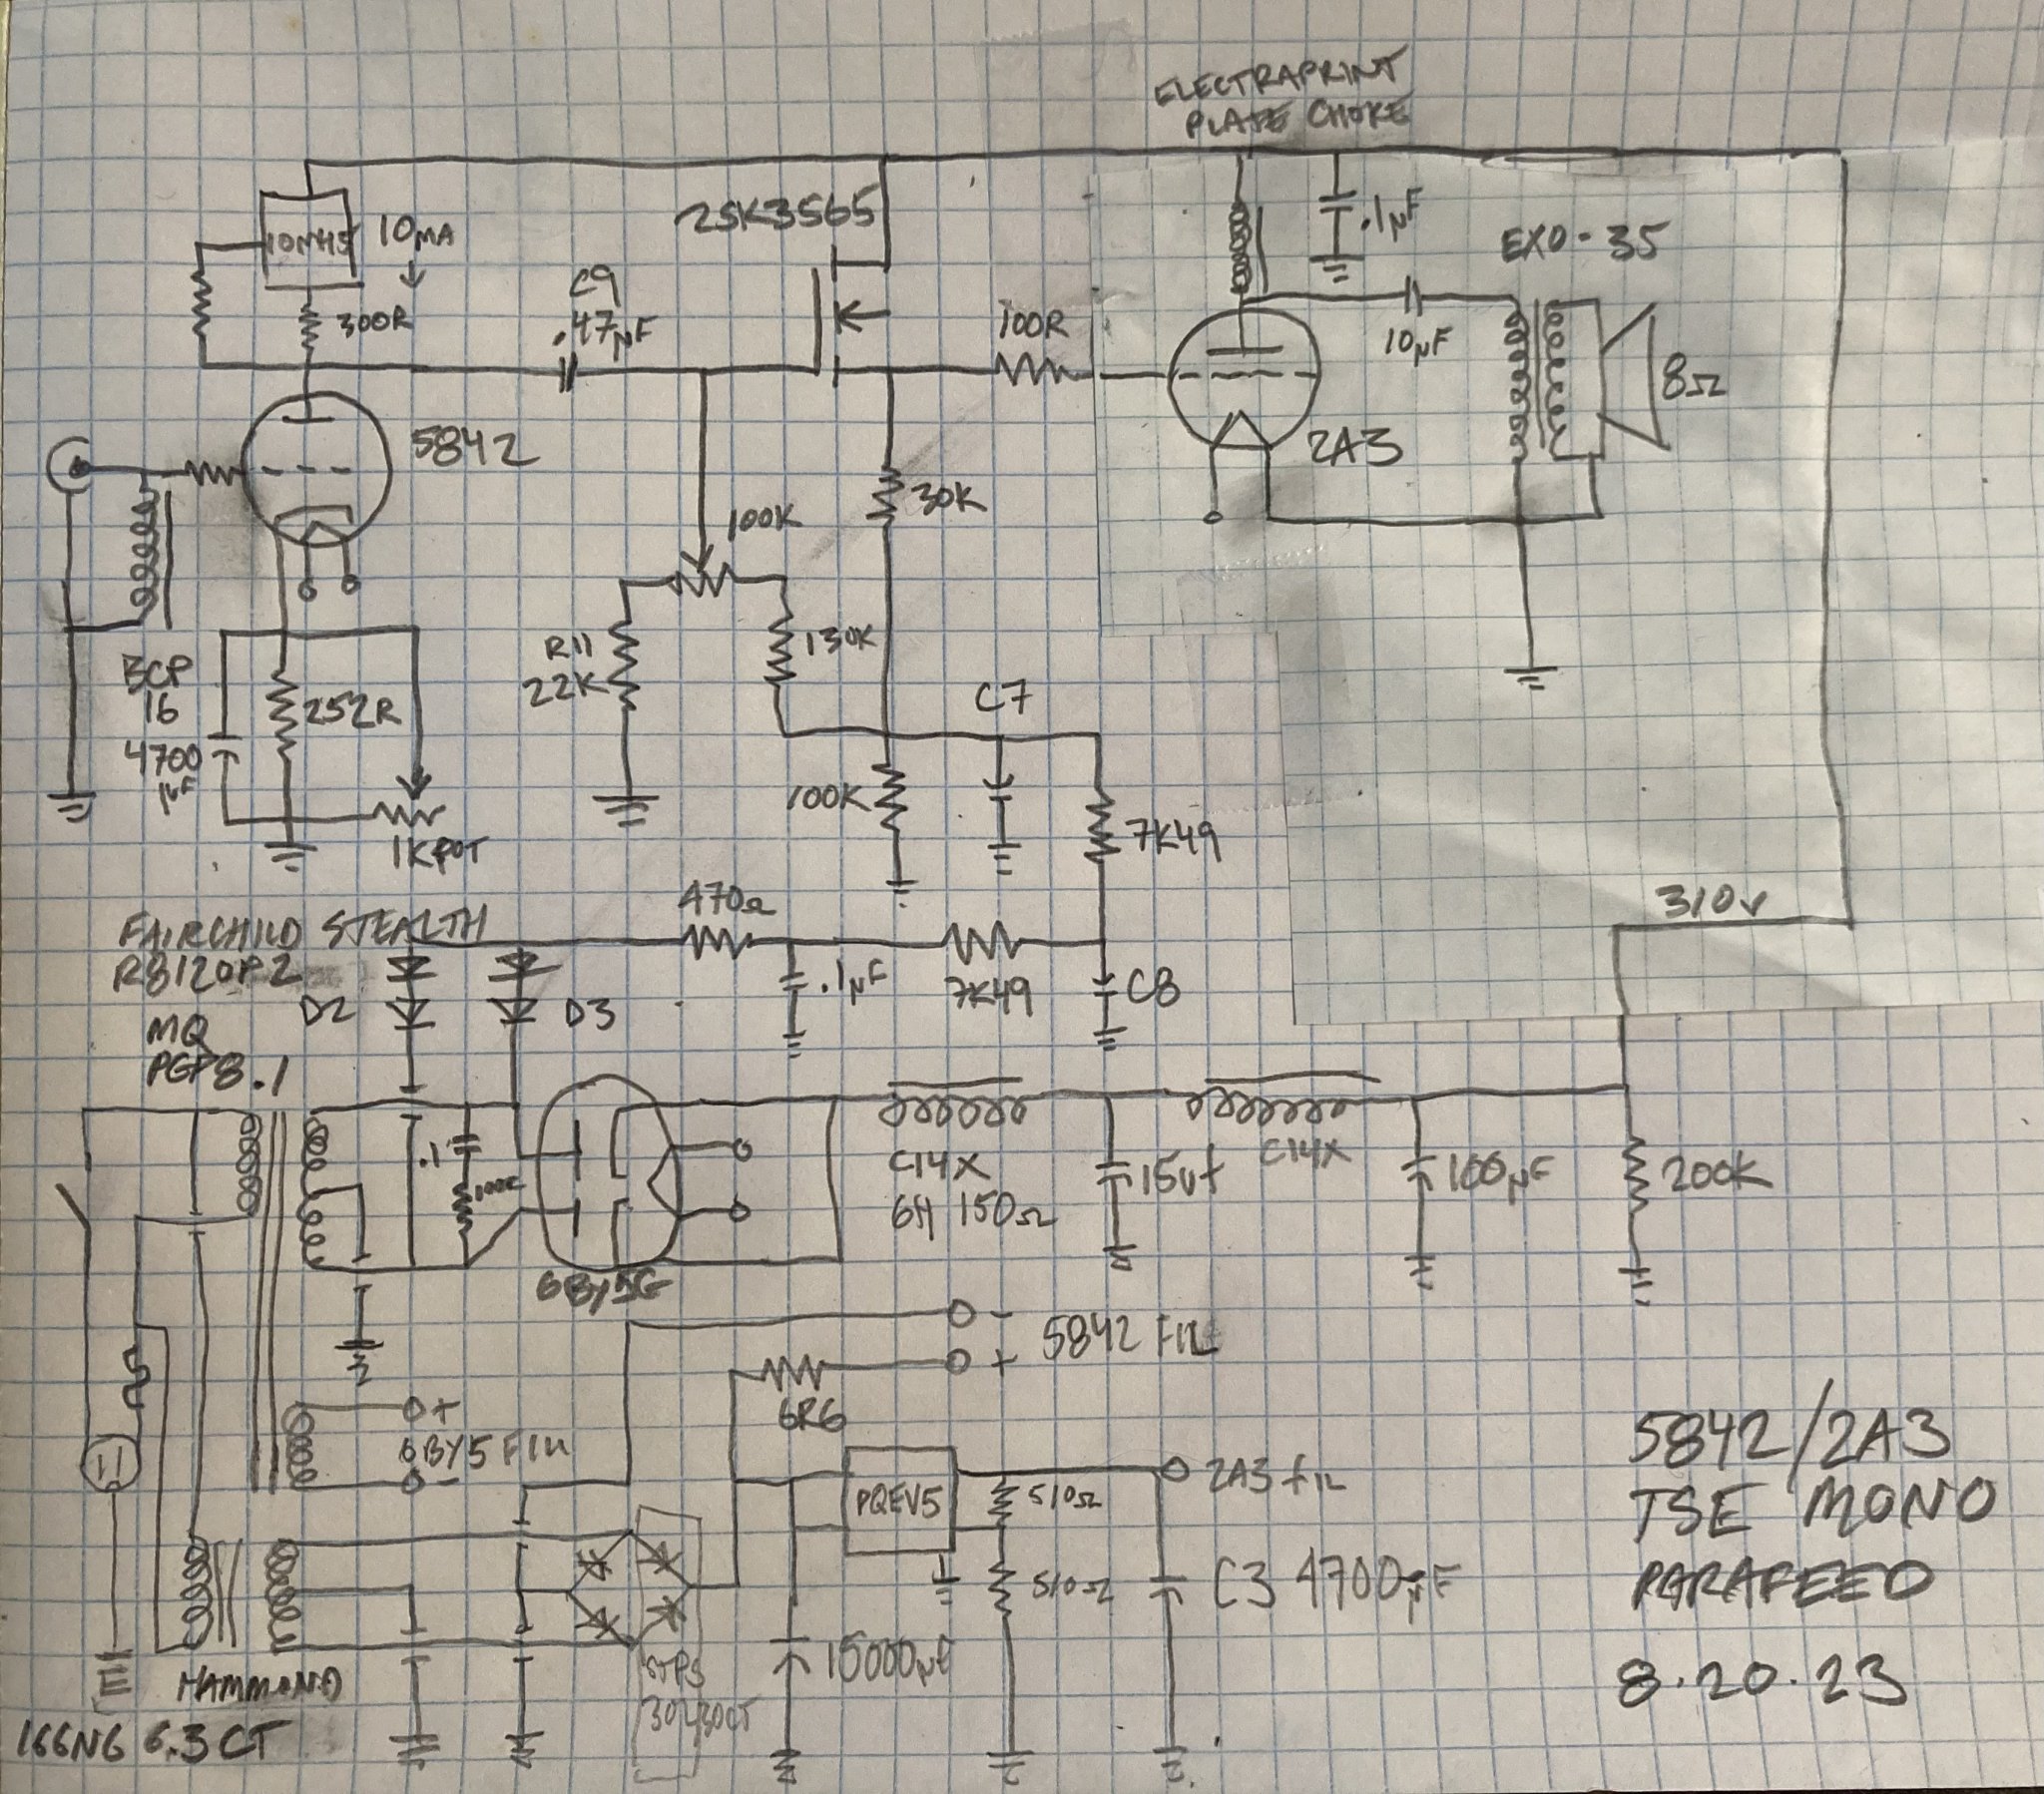 ELECTRAPRINT
PLATE CHOKE
10M45
10MA
300R
C9
.47µF
2SK3565
100R
.1µF
EXO-35
10µF
8Ω
5842
2A3
100K
30K
R11
22K
130K
BCP
16
4700
µF
252R
1K POT
C7
100K
7K49
470Ω
310V
FAIRCHILD STEALTH
R8120P2
D2
D3
.1µF
7K49
C8
MQ
PGP8.1
.1
100K
6BY5G
C14X
6H 150Ω
15uf
C14X
100µF
200K
-
5842 FIL
+
6R6
+
6BY5 FIL
-
PQEV5
510Ω
2A3 FIL
510Ω
C3 4700µF
15000µF
STPS
30L30CT
E
HAMMOND
166N6 6.3CT
5842/2A3
TSE MONO
PARAFEED
8.20.23